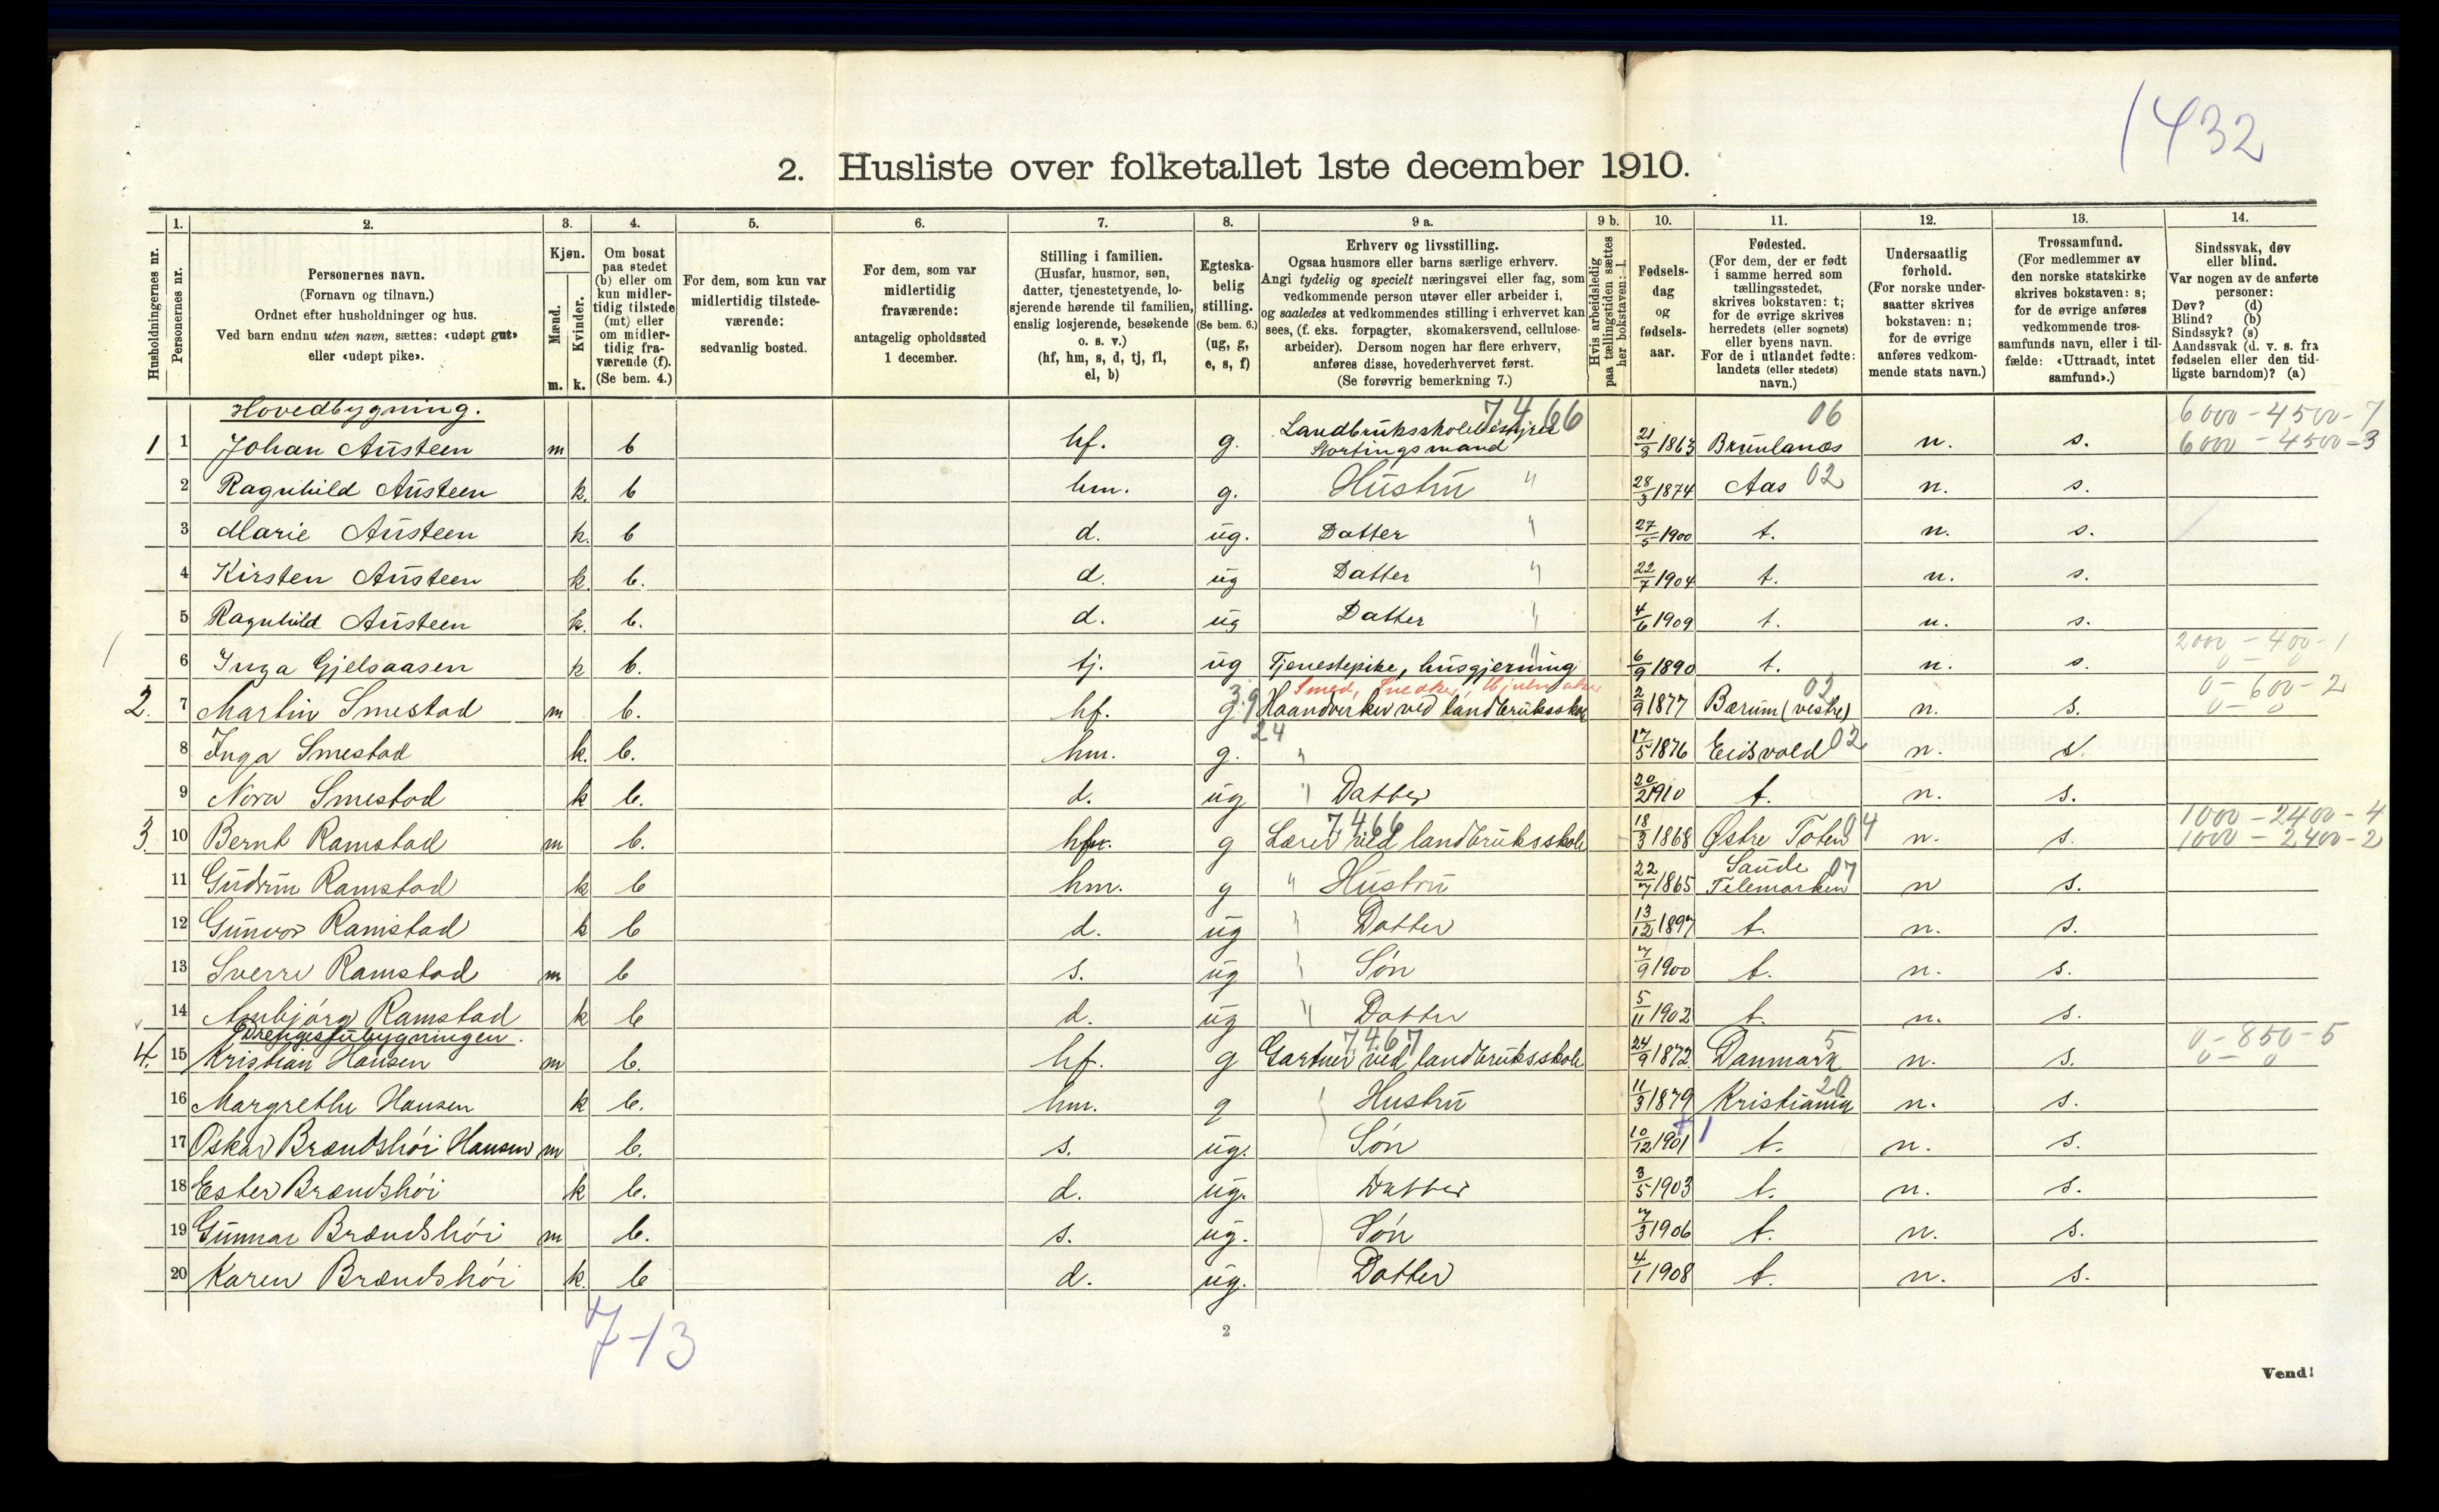 1432
2. Husliste over folketallet 1ste december 1910.
Husholdningernes nr.
1. Personernes nr.
2. Personernes navn.
(Fornavn og tilnavn.)
Ordnet efter husholdninger og hus.
Ved barn endnu uten navn, sættes: «udøpt gut»
eller «udøpt pike».
3. Kjøn.
Mænd. m.
Kvinder. k.
4. Om bosat
paa stedet
(b) eller om
kun midler-
tidig tilstede
(mt) eller
om midler-
tidig fra-
værende (f).
(Se bem. 4.)
5. For dem, som kun var
midlertidig tilstede-
værende:
sedvanlig bosted.
6. For dem, som var
midlertidig
fraværende:
antagelig opholdssted
1 december.
7. Stilling i familien.
(Husfar, husmor, søn,
datter, tjenestetyende, lo-
sjerende hørende til familien,
enslig losjerende, besøkende
o. s. v.)
(hf, hm, s, d, tj, fl,
el, b)
8. Egteska-
belig
stilling.
(Se bem. 6.)
(ug, g,
e, s, f)
9 a. Erhverv og livsstilling.
Ogsaa husmors eller barns særlige erhverv.
Angi tydelig og specielt næringsvei eller fag, som
vedkommende person utøver eller arbeider i,
og saaledes at vedkommendes stilling i erhvervet kan
sees, (f. eks. forpagter, skomakersvend, cellulose-
arbeider). Dersom nogen har flere erhverv,
anføres disse, hovederhvervet først.
(Se forøvrig bemerkning 7.)
9 b. Hvis arbeidsledig
paa tællingstiden sættes
her bokstaven: l.
10. Fødsels-
dag
og
fødsels-
aar.
11. Fødested.
(For dem, der er født
i samme herred som
tællingsstedet,
skrives bokstaven: t;
for de øvrige skrives
herredets (eller sognets)
eller byens navn.
For de i utlandet fødte:
landets (eller stedets)
navn.)
12. Undersaatlig
forhold.
(For norske under-
saatter skrives
bokstaven: n;
for de øvrige
anføres vedkom-
mende stats navn.)
13. Trossamfund.
(For medlemmer av
den norske statskirke
skrives bokstaven: s;
for de øvrige anføres
vedkommende tros-
samfunds navn, eller i til-
fælde: «Uttraadt, intet
samfund».)
14. Sindssvak, døv
eller blind.
Var nogen av de anførte
personer:
Døv? (d)
Blind? (b)
Sindssyk? (s)
Aandssvak (d. v. s. fra
fødselen eller den tid-
ligste barndom)? (a)
Hovedbygning. 7466 06 6000-4500-7
1 1 Johan Austeen m b hf. g. Landbruksskolebestyrer Stortingsmand 21/8 1863 Brunlanes n. s. 6000-4500-3
2 Ragnhild Austeen k. b hm. g. Hustru " 28/3 1874 Aas 02 n. s.
3 Marie Austeen k. b d. ug. Datter " 27/5 1900 t. n. s.
4 Kirsten Austeen k. b. d. ug Datter " 22/7 1904 t. n. s.
5 Ragnhild Austeen k. b. d. ug Datter " 4/6 1909 t. n. s.
2000-400-1
6 Inga Gjelsaasen k b. tj. ug Tjenestepike, husgjerning 6/9 1890 t. n. s. 0-0
Smed, Snedker, Hjulmaker 02 0-600-2
2. 7 Martin Smestad m b. hf. g. 39 Haandverker ved landbruksskole 2/9 1877 Bærum (vestre) n. s. 0-0
24
8 Inga Smestad k. b. hm. g. " 17/5 1876 Eidsvold 02 n. s.
9 Nora Smestad k b. d. ug " Datter 20/2 1910 t. n. s.
7466 1000-2400-4
3. 10 Bernt Ramstad m b. hf. g Lærer ved landbruksskole 18/3 1868 Østre Toten 04 n. s. 1000-2400-2
11 Gudrun Ramstad k b hm. g " Hustru 22/7 1865 Saude Telemarken 07 n s.
12 Gunvor Ramstad k b d. ug " Datter 13/12 1897 t. n. s.
13 Sverre Ramstad m b s. ug " Søn 7/9 1900 t. n. s.
14 Ambjørg Ramstad k b d. ug " Datter 5/11 1902 t. n. s.
Drengestubygningen. 7467 5 0-850-5
4. 15 Kristian Hansen m b. hf. g Gartner ved landbruksskole 24/9 1872 Danmark n. s. 0-0
16 Margrethe Hansen k b. hm. g Hustru 11/3 1879 Kristiania 20 n. s.
17 Oskar Brændshøi Hansen m b. s. ug. Søn 10/12 1901 t. n. s.
18 Ester Brændshøi k b. d. ug. Datter 3/5 1903 t. n. s.
19 Gunnar Brændshøi m b. s. ug. Søn 7/3 1906 t. n. s.
20 Karen Brændshøi k. b d. ug. Datter 4/1 1908 t. n. s.
7-13
2
Vend!